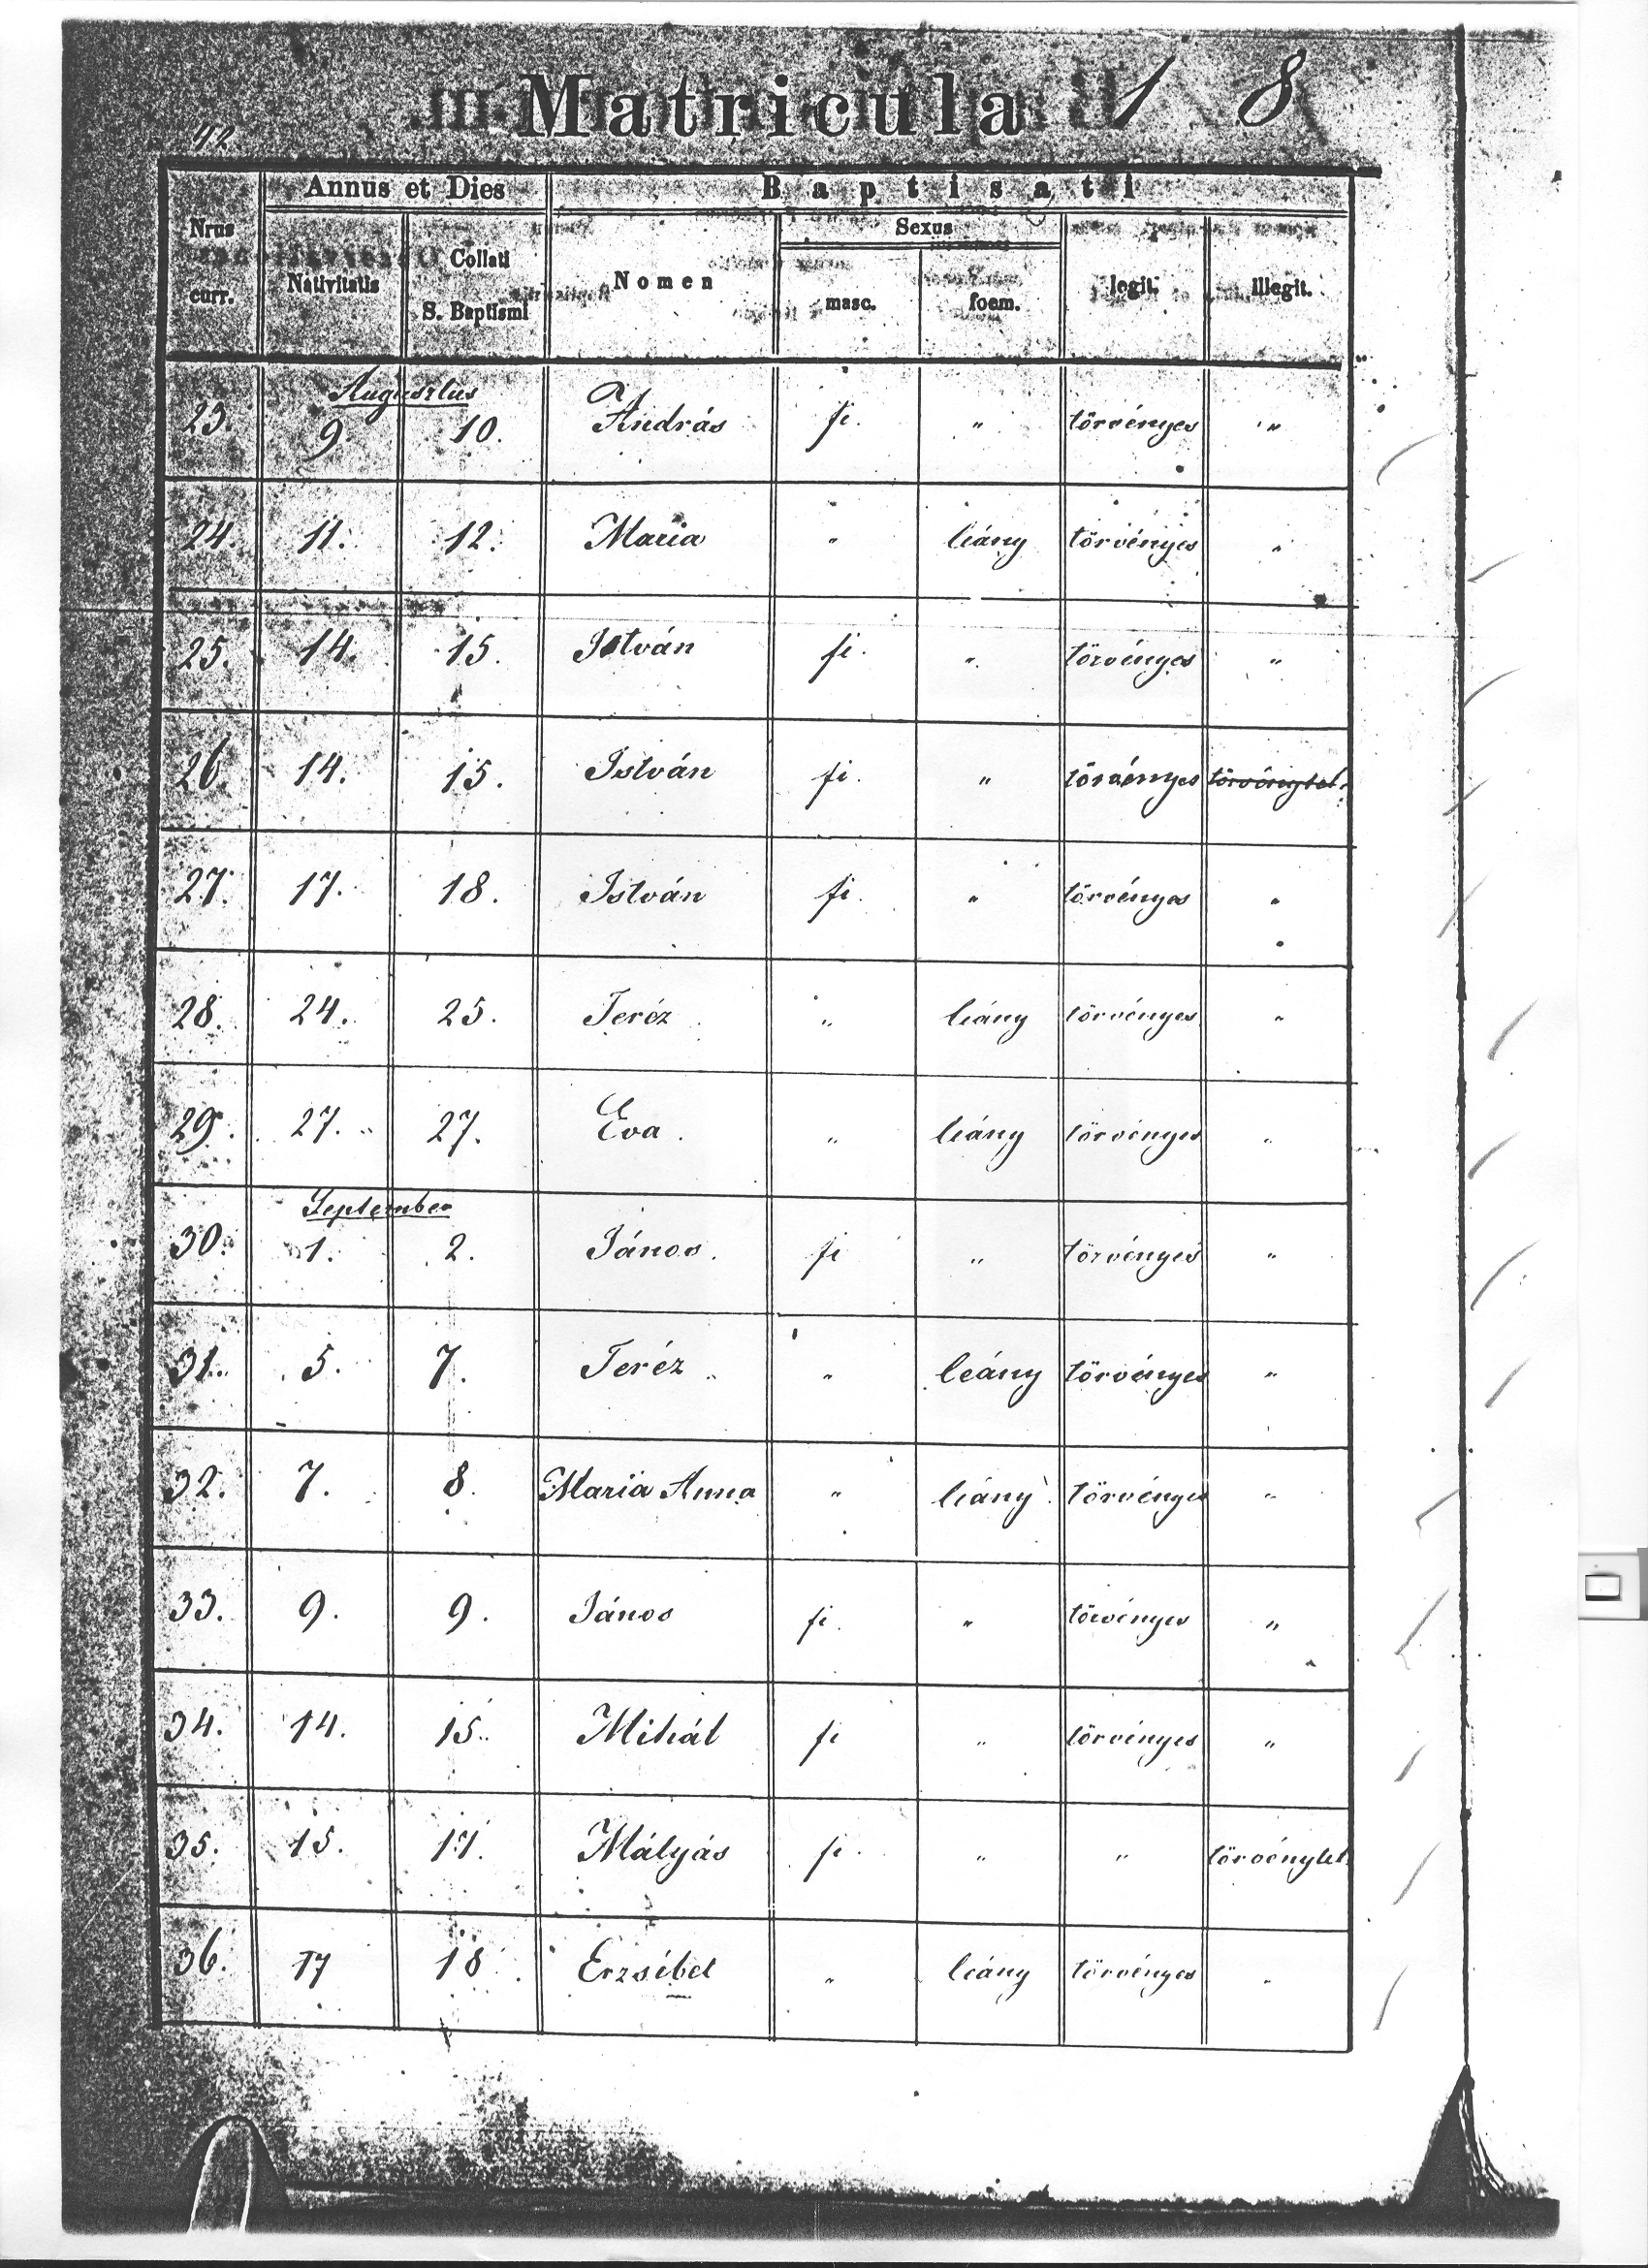 Matricula 1 8
42
Annus et Dies Baptisati
Nrus curr. Nativitatis Collati S. Baptismi Nomen Sexus masc. foem. legit. illegit.
Augusztus
23. 9. 10. András fi. " törvényes "
24. 11. 12. Maria " leány törvényes "
25. 14. 15. István fi. " törvényes "
26 14. 15. István fi. " törvényes törvénytel.
27. 17. 18. István fi. " törvényes "
28. 24. 25. Teréz " leány törvényes "
29. 27. 27. Éva. " leány törvényes "
September
30. 1. 2. János. fi " törvényes "
31. 5. 7. Teréz " leány törvényes "
32. 7. 8. Maria Anna " leány törvényes "
33. 9. 9. János fi. " törvényes "
34. 14. 15. Mihál fi " törvényes "
35. 15. 17. Mátyás fi. " " törvénytel.
36. 17 18. Erzsébet " leány törvényes "